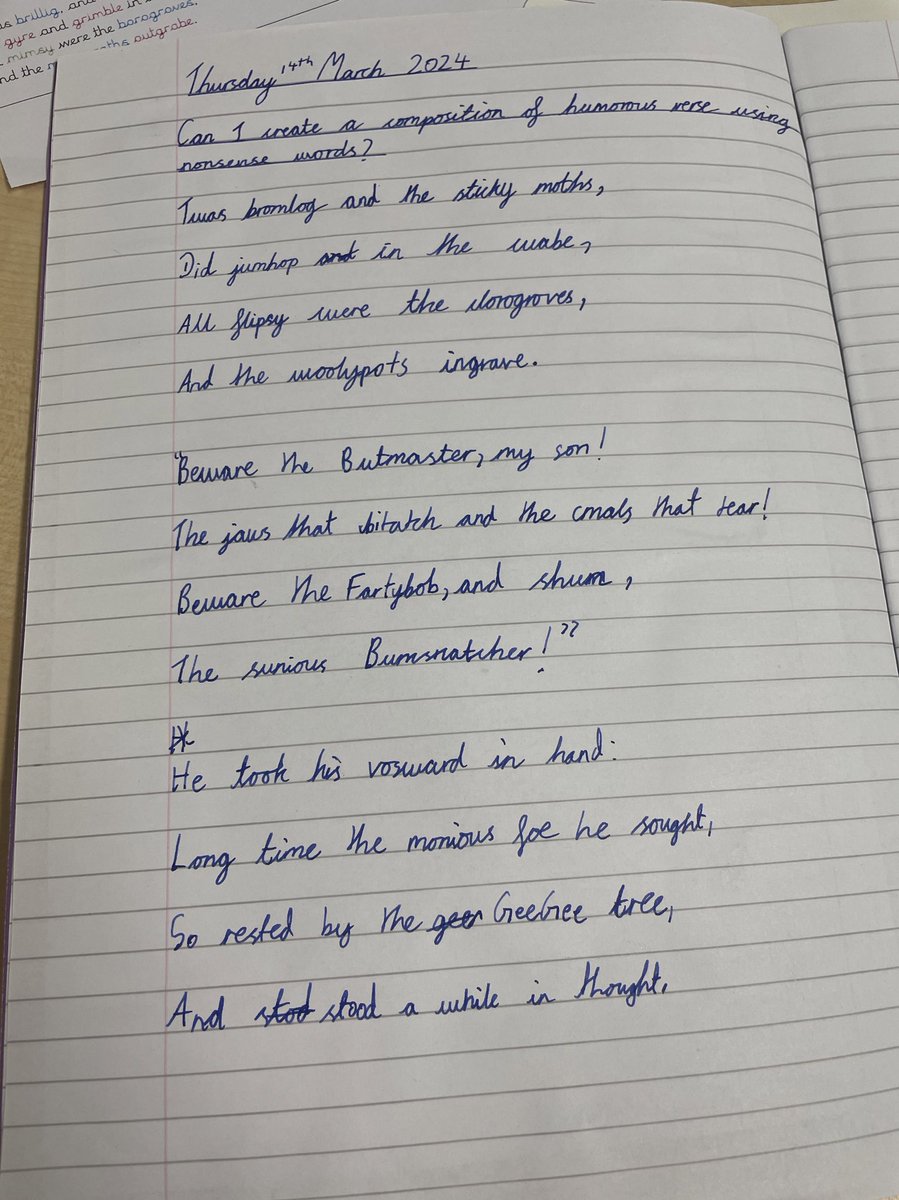 as brillig, and
gyre and grimble in
mimsy were the borogroves,
nd the m ths outgrabe.
Thursday 14th March 2024
Can I create a composition of humorous verse using
nonsense words?
Twas bromlog and the sticky moths,
Did jumhop and in the wabe,
All flipsy were the vlorogroves,
And the woolypots ingrave.
"Beware the Butmaster, my son!
The jaws that bitatch and the cmals that tear!
Beware the Fartybob, and shum,
The sunious Bumsnatcher!"
He took his vosward in hand:
Long time the monious foe he sought,
So rested by the geer GeeGee tree,
And stod stood a while in thought,